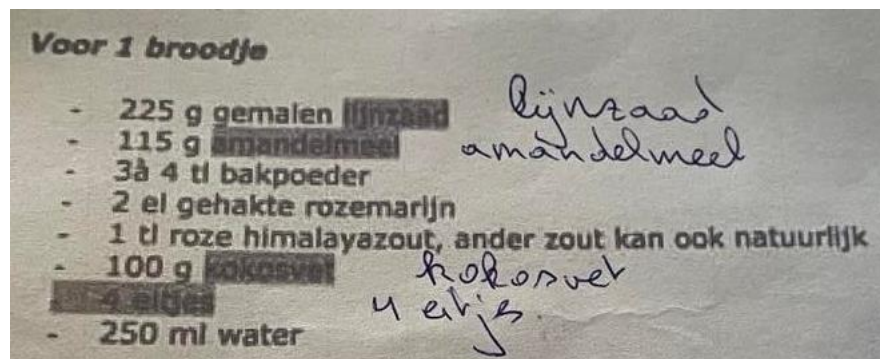 Voor 1 broodje
- 225 g gemalen lijnzaad lijnzaad
- 115 g amandelmeel amandelmeel
- 3à 4 tl bakpoeder
- 2 el gehakte rozemarijn
- 1 tl roze himalayazout, ander zout kan ook natuurlijk
- 100 g kokosvet kokosvet
- 4 eitjes 4 eitjes.
- 250 ml water